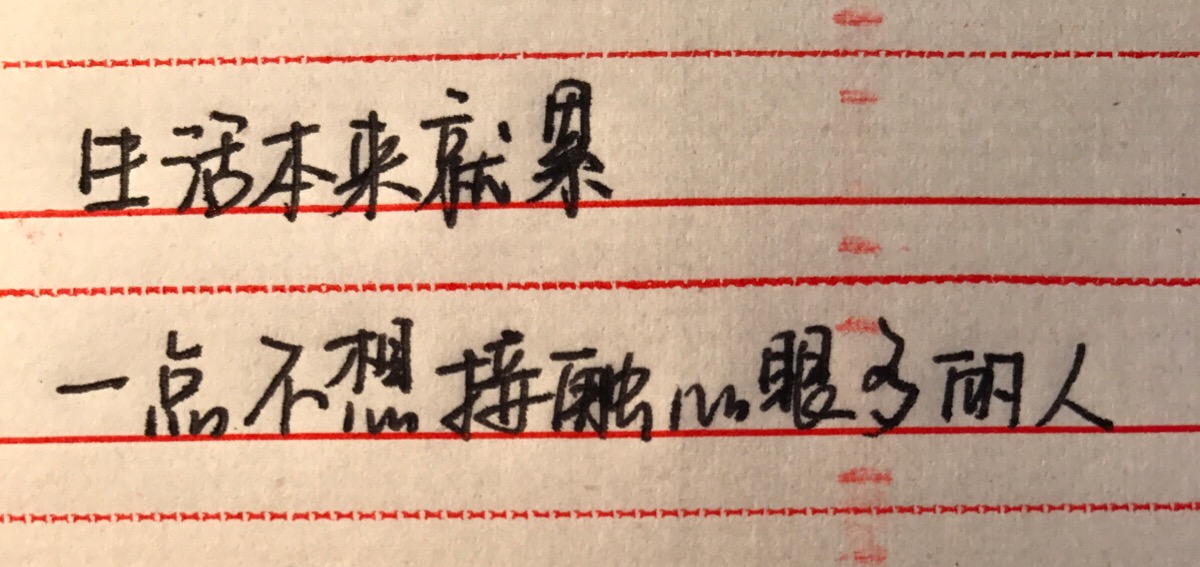 生活本来就累
一点不想接触心眼多的人